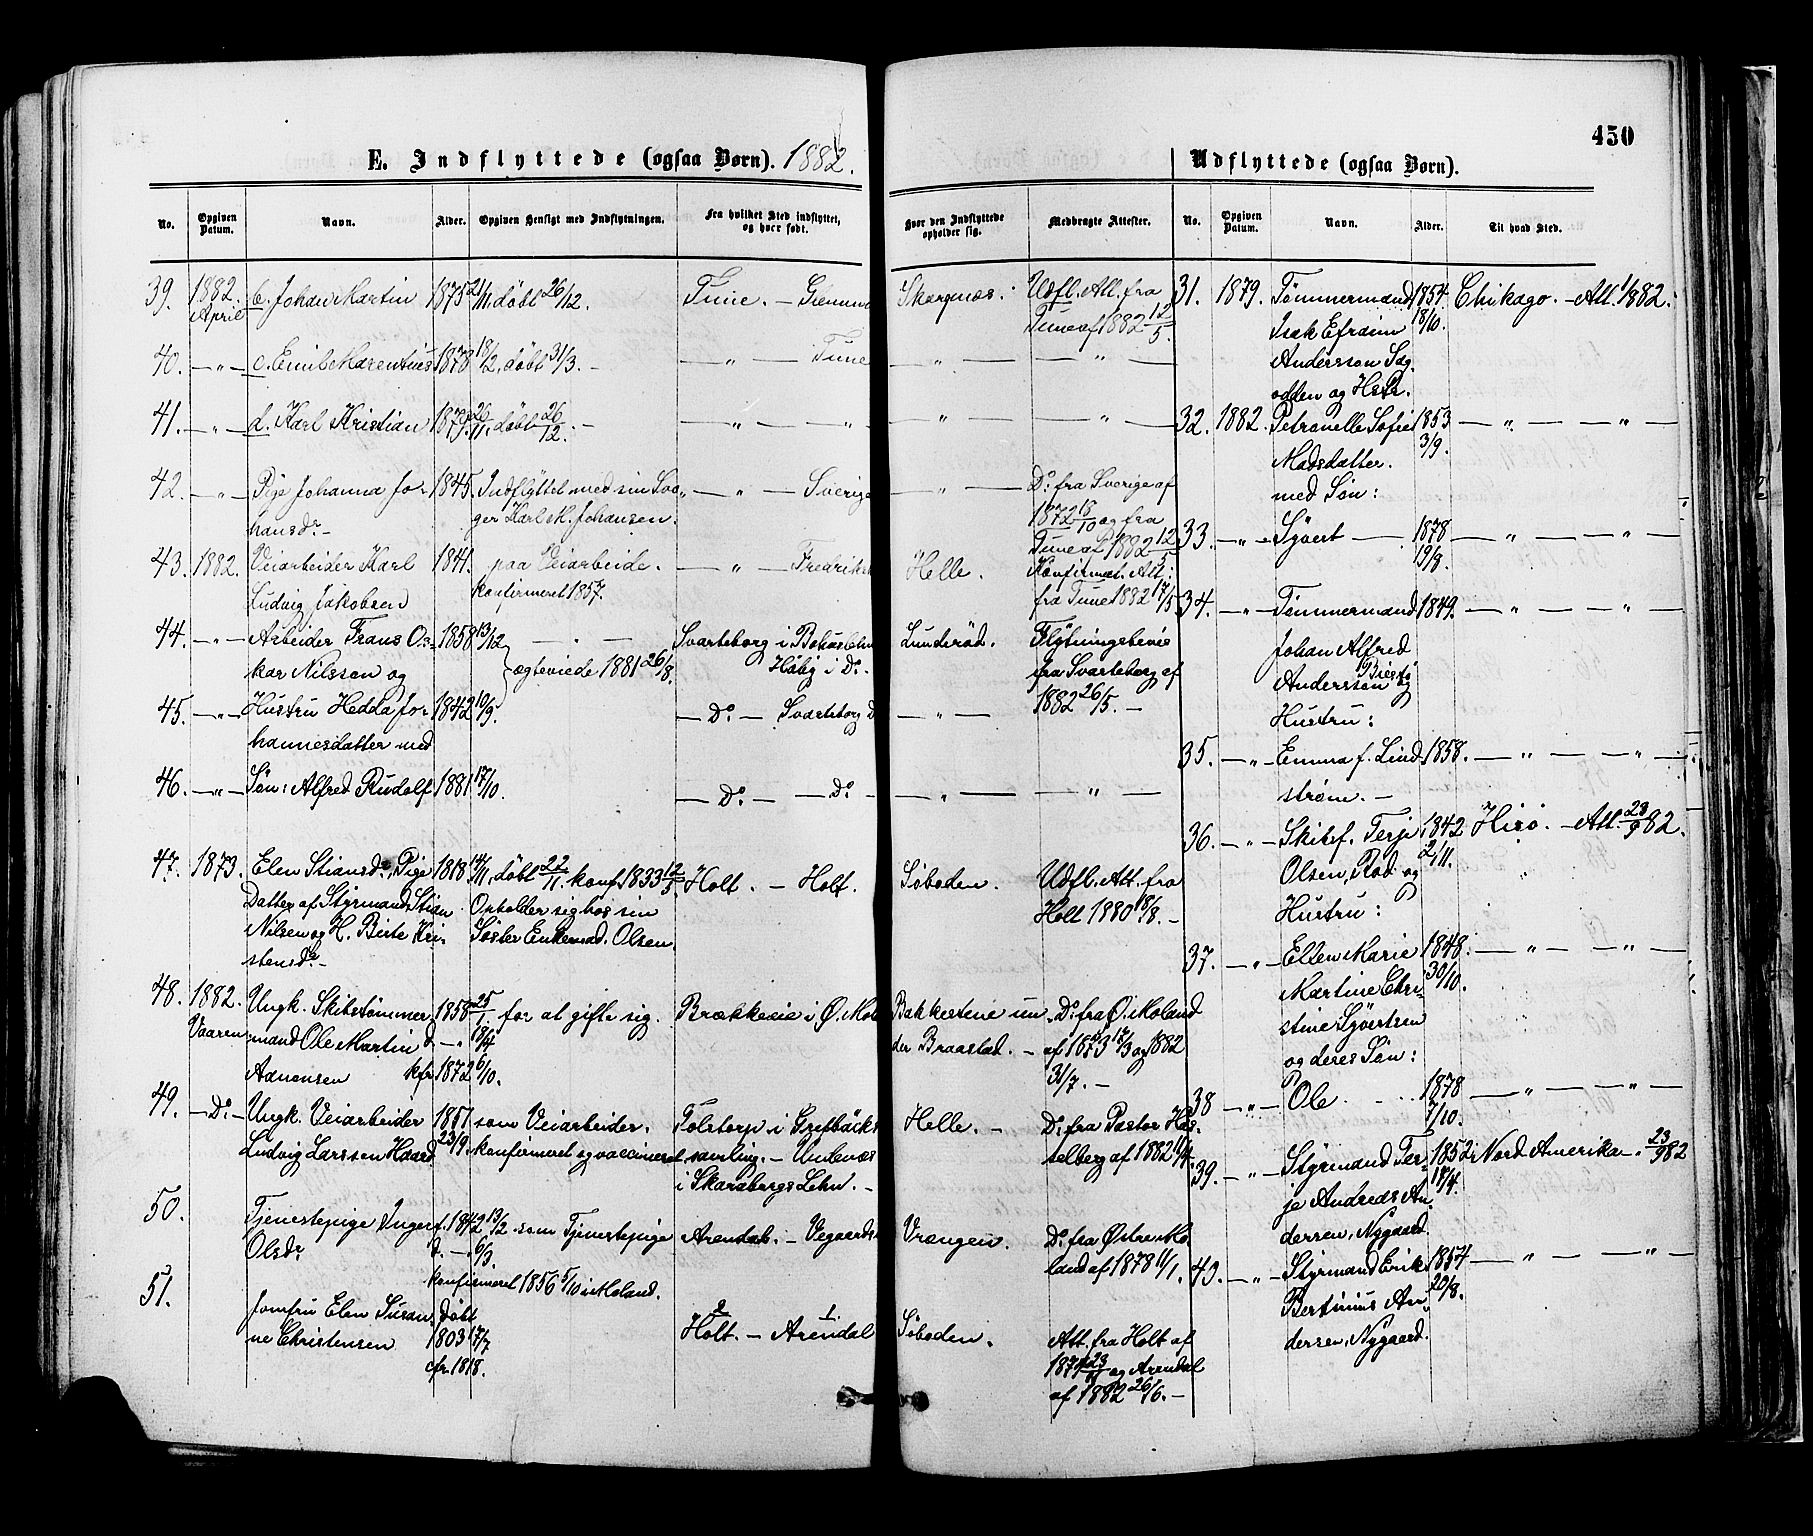 450
E. Indflyttede (ogsaa Børn). 1882.
Udflyttede (ogsaa Børn).
No. Opgiven Datum. Navn. Alder. Opgiven Hensigt med Indflytningen. Fra hvilket Sted indflyttet, og hvor født. Hvor den Indflyttede opholder sig. Medbragte Attester.
39. 1882. April b. Johan Martin 1875 21/11 døbt 26/12. Tune. — Skarpnæs. Udfl. Att. fra
Tune af 1882 12/5.
40. — „ — c. Emil Marentius 1878 18/2, døbt 31/3. — — „ — Tune — „ — — „ —
41. — „ — d. Karl Kristian 1879. 26/11. døbt 26/12. — — „ — „ — „ — — „ —
42. — „ — Pige Johanna Jo- 1845. Indflyttet med sin Svo- — „ — Sverige — „ — Do. fra Sverige af
hansdr. — ger Karl M. Johansen. 1872 18/10 og fra
Tune af 1882 12/5
43. 1882. Veiarbeider Karl 1841. paa Veiarbeide. — „ — Fredrikst Helle. Konfirmat. Att.
Ludvig Jakobsen konfirmeret 1857. fra Tune 1882 17/5
44. — „ — Arbeider Frans Os- 1858 13/12 — „ — Svarteborg i Bohuslehn Lunderød. Flytningsbevis
kar Nilssen og ægteviede 1881 26/8. Håby i Do. fra Svarteborg af
45. — „ — Hustru Hedda Jo- 1842 10/9. — Do. — Svarteborg D — „ — 1882 26/5. —
hannesdatter med
46. — „ — Søn: Alfred Rudolf 1881 17/10. — Do. — — Do. — — „ — — „ —
47. 1873. Elen Stiansdr, Pige 1818 14/11, døbt 22/11. konf. 1833 12/5 Holt. — Holt. Søboden. Udfl. Att. fra
Datter af Styrmand Stian Opholder sig hos sin Holt 1880 18/8. —
Nilsen og H. Birte Kri- Søster Enkemad. Olsen.
stensdr. —
48. 1882. Ungk. Skibstømmer- 1858 25/1 for at gifte sig. Brækkevie i Ø. Mol Bakkestene un- Do. fra Ø. Moland
Vaaren mand Ole Martin d. — „ 18/4 der Braastad. — af 1873 18/3 og 1882
Adnensen kfr. 1872 6/10. 31/7. —
49. — Do. — Ungk. Veiarbeider 1851 som Veiarbeider. Tolstorp i Helle. — Do. fra Pastor Has-
Ludvig Larssen Haard 23/9. konfirmeret og vaccineret samling. — Undenæs selberg af 1882 11/4.
i Skaraborgs Lehn. —
50. Tjenestepige Inger f. 1842 13/2 som Tjenestepige Arendal. — Vegaards Vrangen. Do. fra Østre Mo-
Olsdr. d. — „ 6/3. land af 1878 11/1.
konfirmeret 1856 5/10 i Moland.
51. Jomfru Elen Susan- døbt 2 1
ne Christensen 1803 17/7 Holt. — Arendal Søboden. Att. fra Holt af
cfr. 1818. 1874 23/11 og Arendal
af 1882 26/6. —
No. Opgiven Datum. Navn. Alder. Til hvad Sted.
31. 1879. Tømmermand 1854 Chikago. — Att. 1882.
Isak Efraim 18/10.
Anderssen Sag-
odden og Hstr.
32. 1882. Petronelle Sofie 1853 — „ — „ —
Madsdatter. 3/9.
med Søn:
33. — „ — Syvert — 1878 — „ — „ —
19/8.
34. — „ — Tømmermand 1849. — „ — „ —
Johan Alfred
Anderssen og
Hustru:
35. — „ — Emma f. Lind- 1858. — „ — „ —
strøm. —
36. — „ Skibsf. Terje 1842 Hisø. — Att. 23/9 82.
Olsen, Rød og 2/11.
Hustru:
37. — „ — Ellen Marie 1848. — „ — „ —
Martine Chri- 30/10.
stine Syvertsen
og deres Søn:
38 — „ — Ole. 1878 — „ — „ —
7/10.
39. — „ Styrmand Ter- 1852 Nord Amerika — „ 23/9 82
je Andreas An- 18/4.
dersen, Nygaard.
40. — „ — Styrmand Erik 1854 — „ — „ —
Bertinius An- 20/8.
dersen, Nygaard.